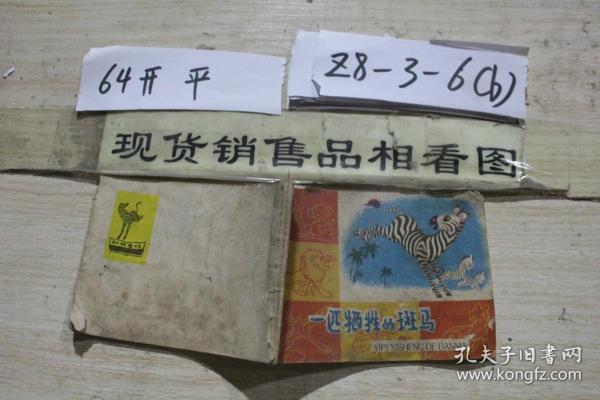 64开 平
Z8-3-6(b)
现货销售品相看图
一匹牺牲的斑马
YIPI XISHENG DE BANMA
孔夫子旧书网
www.kongfz.com